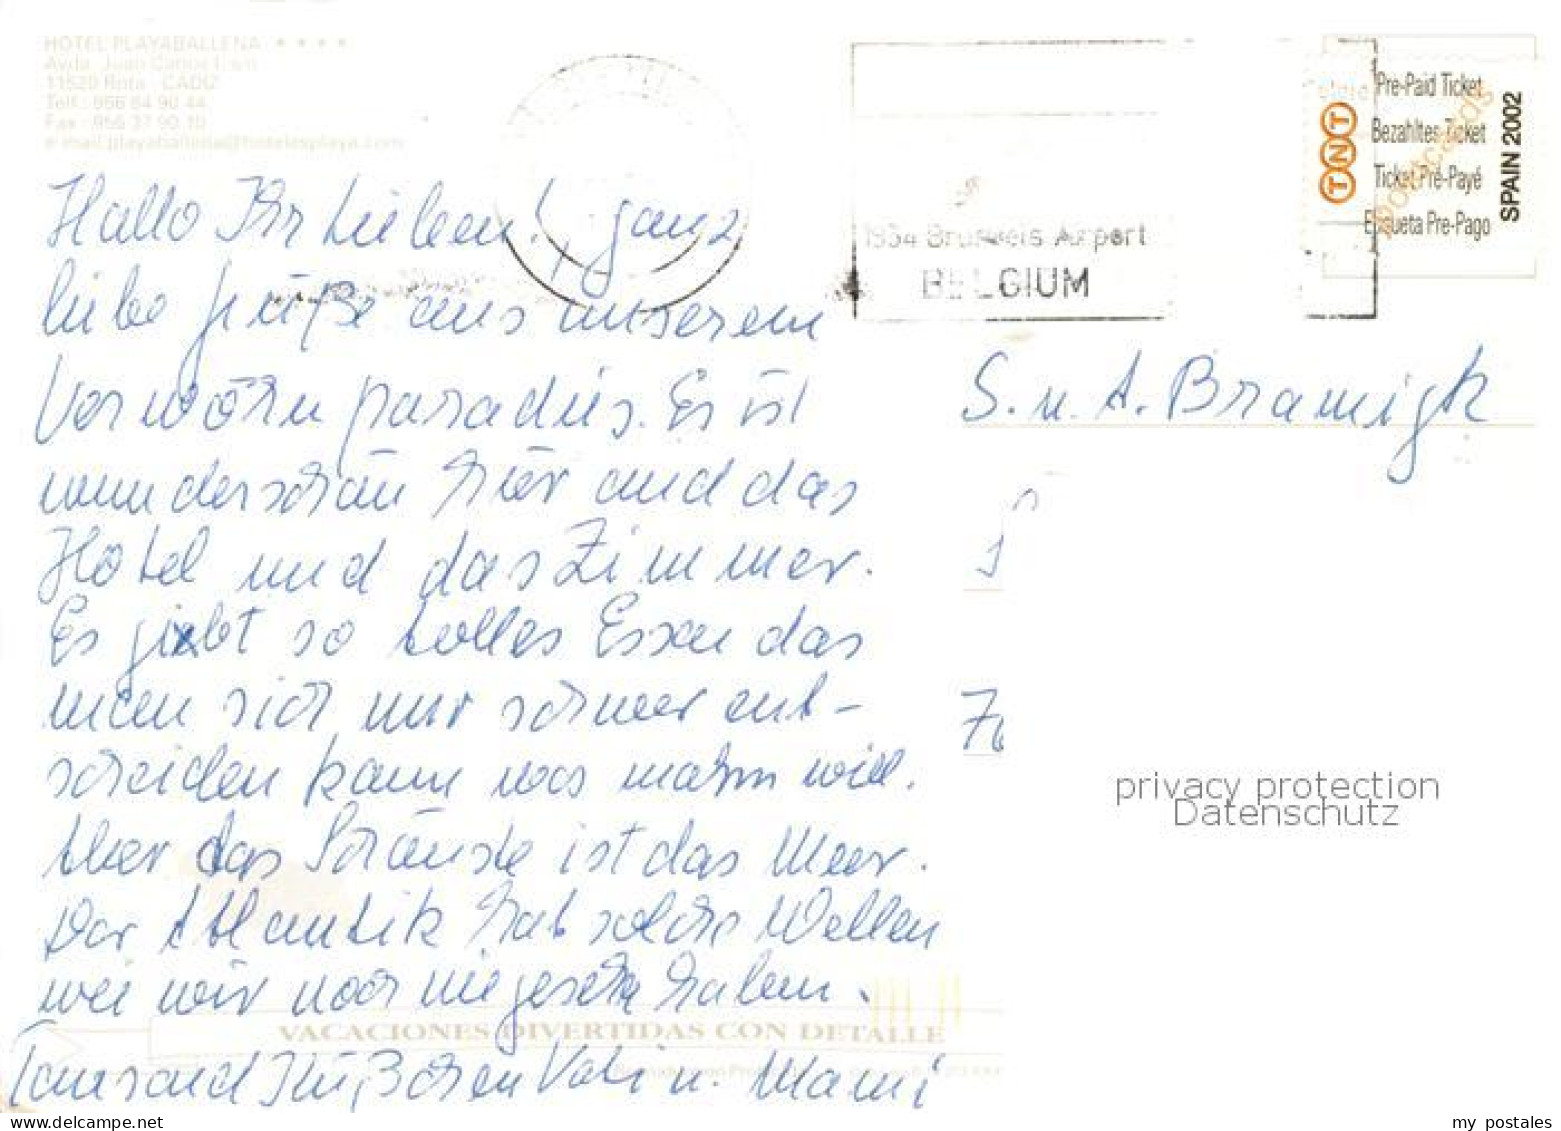 HOTEL PLAYABALLENA ★ ★ ★ ★
Avda. Juan Carlos I s/n
11520 Rota - CADIZ
Telf.: 956 84 90 44
Fax: 956 37 90 10
e-mail: playaballena@hotelesplaya.com
Hallo Ihr Lieben!, ganz
liebe Grüße aus unserem
Verwöhnparadies. Es ist
wunderschön hier und das
Hotel und das Zimmer.
Es giebt so tolles Essen das
man sich nur schwer ent-
scheiden kann was mahn will.
Aber das Schönste ist das Meer.
Der Atlantik hat solche Wellen
wie wir noch nie gesehn haben.
Tausend Küßchen Vati u. Mami
VACACIONES DIVERTIDAS CON DETALLE
1934 Brussels Airport
BELGIUM
TNT
Pre-Paid Ticket
Bezahltes Ticket
Ticket Pré-Payé
Etiqueta Pre-Pago
Postcards
SPAIN 2002
S. u. A. Bramigk
privacy protection
Datenschutz
my postales